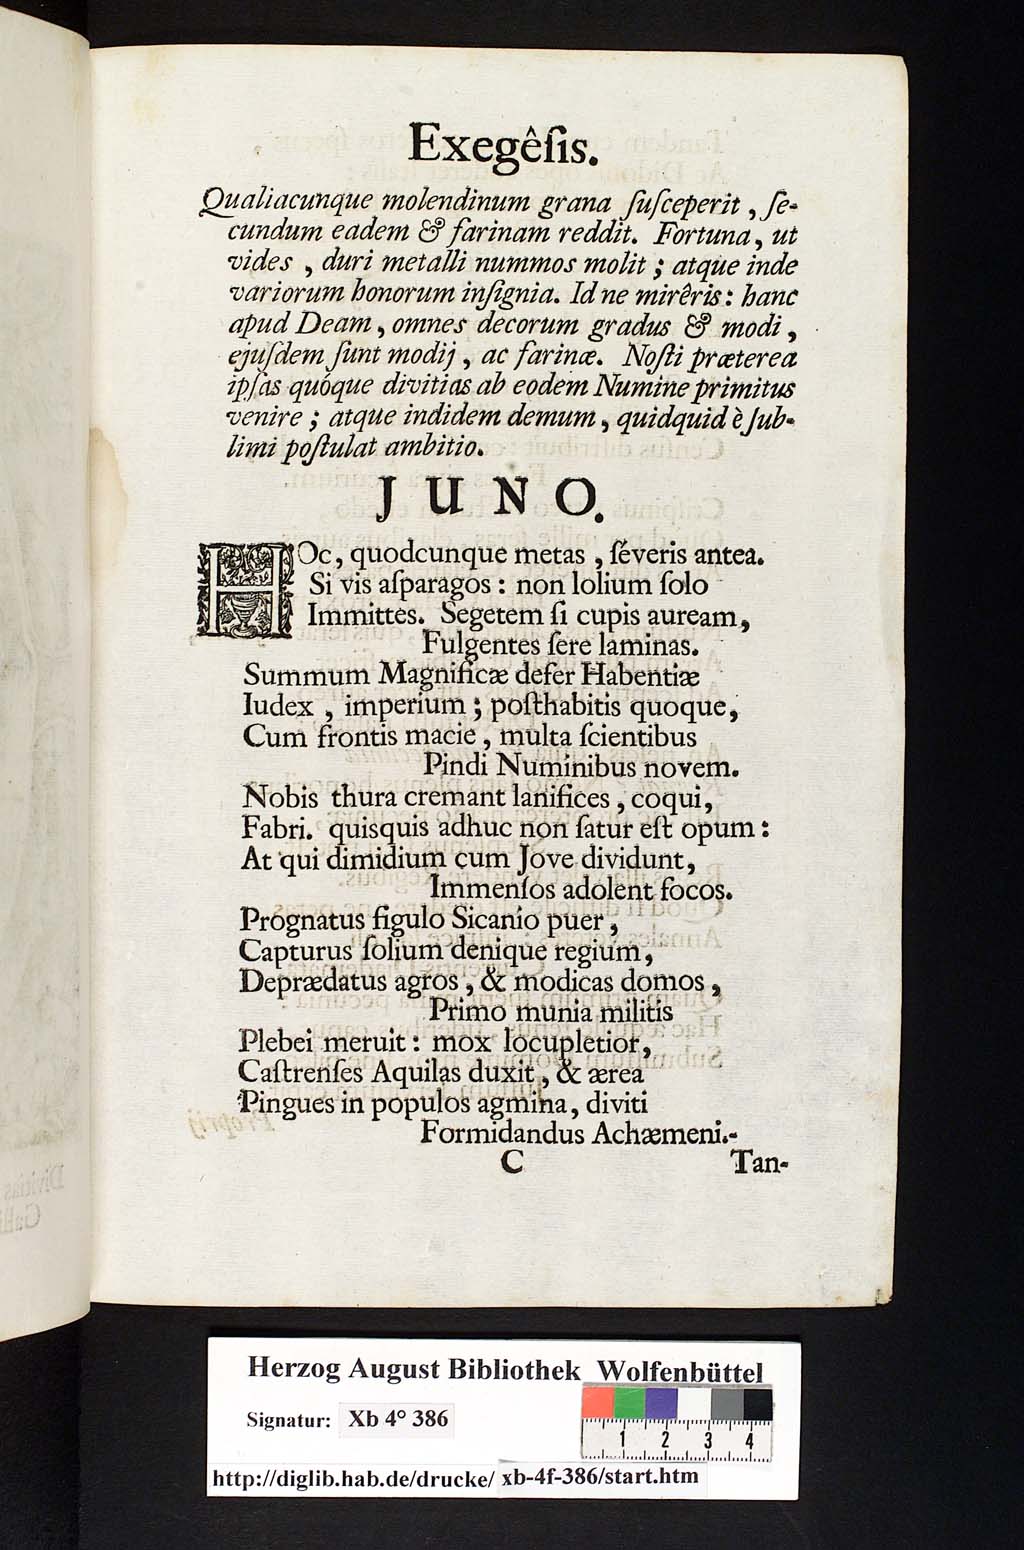 Exegêſis.
Qualiacunque molendinum grana ſuſceperit, ſe-
cundum eadem & farinam reddit. Fortuna, ut
vides, duri metalli nummos molit; atque inde
variorum honorum inſignia. Id ne mirêris: hanc
apud Deam, omnes decorum gradus & modi,
ejuſdem ſunt modij, ac farinæ. Noſti præterea
ipſas quóque divitias ab eodem Numine primitus
venire; atque indidem demum, quidquid è ſub-
limi poſtulat ambitio.
JUNO.
HOc, quodcunque metas, ſéveris antea.
Si vis aſparagos: non lolium ſolo
Immittes. Segetem ſi cupis auream,
Fulgentes ſere laminas.
Summum Magnificæ defer Habentiæ
Iudex, imperium; poſthabitis quoque,
Cum frontis macie, multa ſcientibus
Pindi Numinibus novem.
Nobis thura cremant lanifices, coqui,
Fabri. quisquis adhuc non ſatur eſt opum:
At qui dimidium cum Jove dividunt,
Immenſos adolent focos.
Prognatus figulo Sicanio puer,
Capturus ſolium denique regium,
Deprædatus agros, & modicas domos,
Primo munia militis
Plebei meruit: mox locupletior,
Caſtrenſes Aquilas duxit, & ærea
Pingues in populos agmina, diviti
Formidandus Achæmeni.-
C Tan-
Herzog August Bibliothek Wolfenbüttel
Signatur: Xb 4° 386
1 2 3 4
http://diglib.hab.de/drucke/ xb-4f-386/start.htm